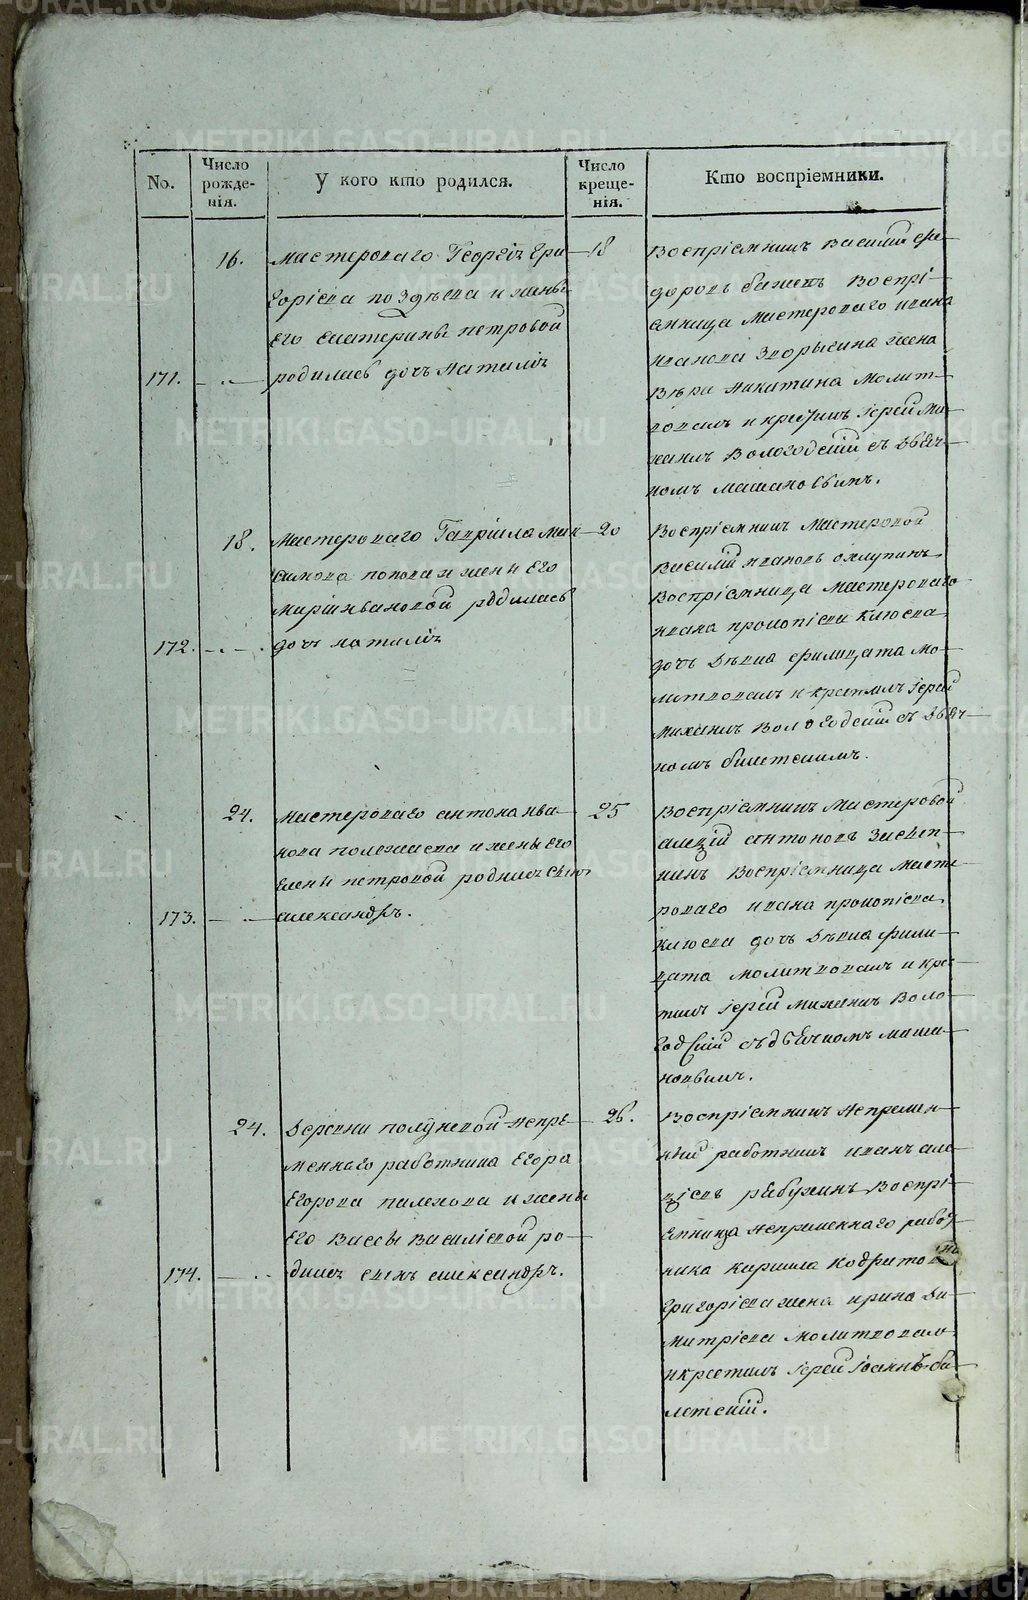 No.
Число рожде- нія.
У кого кто родился.
Число креще- нія.
Кто воспріемники.
171.
16.
Мастероваго Георгія Гри-
горіева поздѣева и жены
Его Екатерины петровой
родилась дочь Наталія
18
Воспріемникъ Василій Фе-
доровъ Воспрі-
емница Мастероваго ивана
иванова жена
Вѣра Никитина Молит-
вовалъ и крестилъ Іерей Ми-
хаилъ Вологодскій съ дьяч-
комъ Машановымъ.
172.
18.
Мастероваго Гавріила Мак-
симова попова и жены Его
Маріи ивановой родилась
дочь наталія
20
Воспріемникъ Мастеровой
Василій ивановъ охлупинъ
Воспріемница Мастероваго
ивана прокопіева Клюева
дочь Дѣвка филицата Мо-
литвовалъ и крестилъ Іерей
Михаилъ Вологодскій съ дьяч-
комъ билетскимъ.
173.
24.
Мастероваго антона ива-
нова полежаева и жены Его
Елены петровой родился сынъ
александръ.
25
Воспріемникъ Мастеровой
антоновъ
Воспріемница Масте-
роваго ивана прокопіева
клюева дочь Дѣвка фили-
цата Молитвовалъ и кре-
тилъ Іерей Михаилъ Воло-
годскій съ дьячкомъ маша-
новымъ.
174.
24.
Деревни полдневой Непре-
меннаго работника Егора
Егорова паленова и жены
Его Вассы Васильевой ро-
дился сынъ александръ.
26.
Воспріемникъ Непремен-
ный работникъ иванъ але-
ѣевъ рябухинъ Воспрі-
емница Непременнаго работ-
ника карпила
григоріева жена ирина Ди-
митріева Молитвовалъ
и крестилъ Іерей Іоаннъ би-
летскій.
METRIKI.GASO-URAL.RU